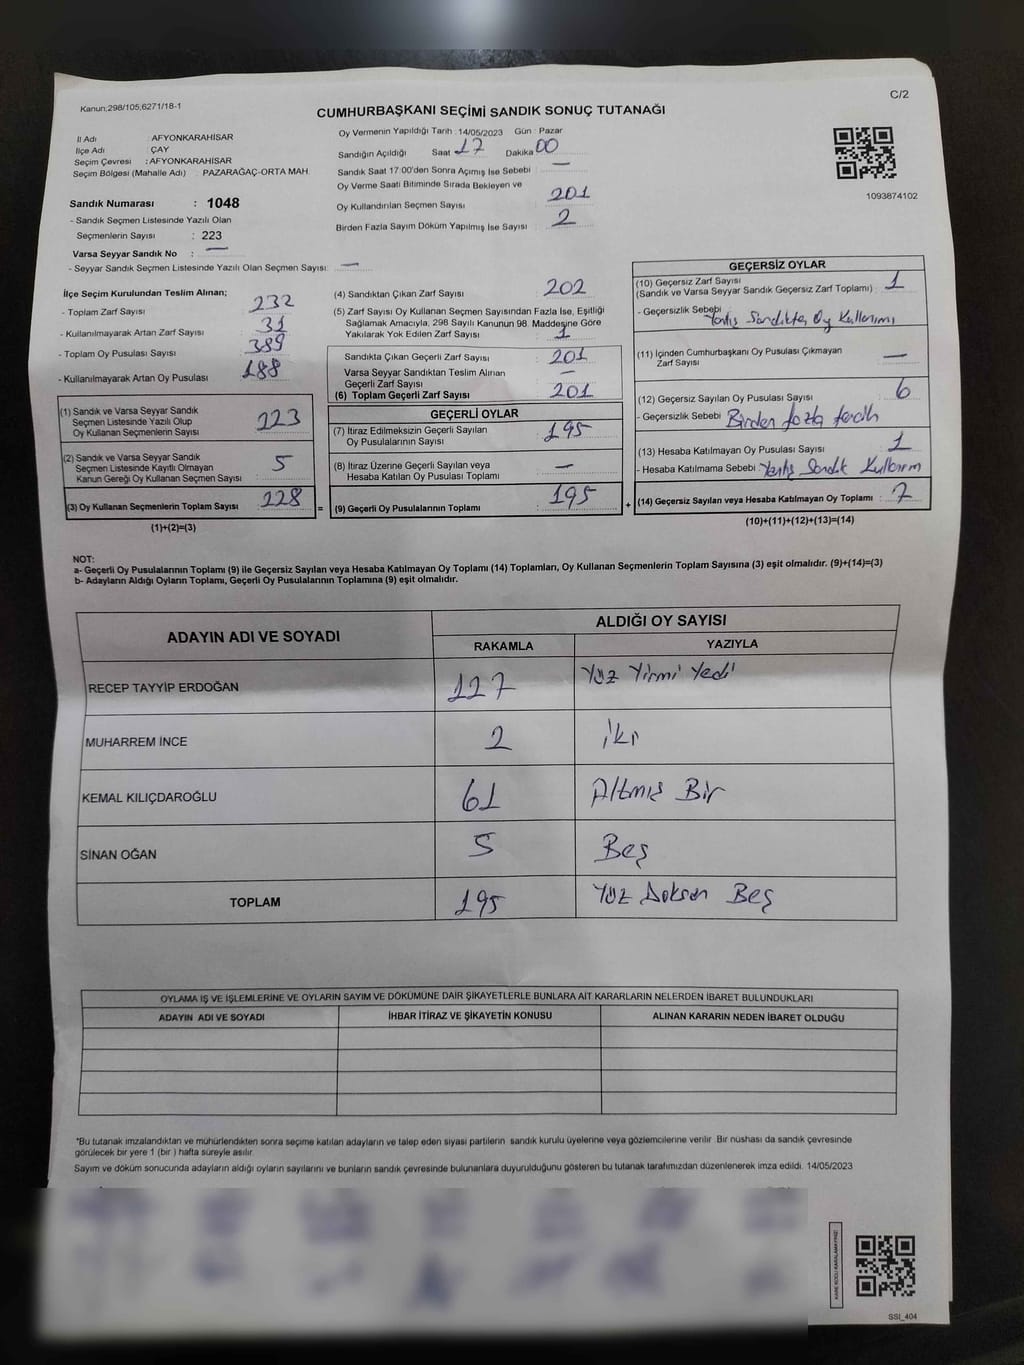 Kanun;298/105,6271/18-1
C/2
CUMHURBAŞKANI SEÇİMİ SANDIK SONUÇ TUTANAĞI
İl Adı : AFYONKARAHİSAR
İlçe Adı : ÇAY
Seçim Çevresi : AFYONKARAHİSAR
Seçim Bölgesi (Mahalle Adı) : PAZARAĞAÇ-ORTA MAH.
Oy Vermenin Yapıldığı Tarih : 14/05/2023 Gün : Pazar
Sandığın Açıldığı Saat : 17 Dakika : 00
Sandık Saat 17:00'den Sonra Açımış İse Sebebi : —
Oy Verme Saati Bitiminde Sırada Bekleyen ve
Oy Kullandırılan Seçmen Sayısı : 201
Birden Fazla Sayım Döküm Yapılmış İse Sayısı : 2
1093874102
Sandık Numarası : 1048
- Sandık Seçmen Listesinde Yazılı Olan
Seçmenlerin Sayısı : 223
Varsa Seyyar Sandık No : —
- Seyyar Sandık Seçmen Listesinde Yazılı Olan Seçmen Sayısı: —
İlçe Seçim Kurulundan Teslim Alınan;
- Toplam Zarf Sayısı : 232
- Kullanılmayarak Artan Zarf Sayısı : 31
- Toplam Oy Pusulası Sayısı : 389
- Kullanılmayarak Artan Oy Pusulası : 188
(1) Sandık ve Varsa Seyyar Sandık
Seçmen Listesinde Yazılı Olup
Oy Kullanan Seçmenlerin Sayısı : 223
(2) Sandık ve Varsa Seyyar Sandık
Seçmen Listesinde Kayıtlı Olmayan
Kanun Gereği Oy Kullanan Seçmen Sayısı : 5
(3) Oy Kullanan Seçmenlerin Toplam Sayısı : 228
(1)+(2)=(3)
=
(4) Sandıktan Çıkan Zarf Sayısı : 202
(5) Zarf Sayısı Oy Kullanan Seçmen Sayısından Fazla İse, Eşitliği
Sağlamak Amacıyla; 298 Sayılı Kanunun 98. Maddesine Göre
Yakılarak Yok Edilen Zarf Sayısı : 1
Sandıkta Çıkan Geçerli Zarf Sayısı : 201
Varsa Seyyar Sandıktan Teslim Alınan
Geçerli Zarf Sayısı : —
(6) Toplam Geçerli Zarf Sayısı : 201
GEÇERLİ OYLAR
(7) İtiraz Edilmeksizin Geçerli Sayılan
Oy Pusulalarının Sayısı : 195
(8) İtiraz Üzerine Geçerli Sayılan veya
Hesaba Katılan Oy Pusulası Toplamı : —
(9) Geçerli Oy Pusulalarının Toplamı : 195
+
GEÇERSİZ OYLAR
(10) Geçersiz Zarf Sayısı
(Sandık ve Varsa Seyyar Sandık Geçersiz Zarf Toplamı) : 1
- Geçersizlik Sebebi : Yanlış Sandıkta Oy Kullanımı
(11) İçinden Cumhurbaşkanı Oy Pusulası Çıkmayan
Zarf Sayısı : —
(12) Geçersiz Sayılan Oy Pusulası Sayısı : 6
- Geçersizlik Sebebi : Birden fazla tercih
(13) Hesaba Katılmayan Oy Pusulası Sayısı : 1
- Hesaba Katılmama Sebebi : Yanlış Sandık Kullanım
(14) Geçersiz Sayılan veya Hesaba Katılmayan Oy Toplamı : 7
(10)+(11)+(12)+(13)=(14)
NOT:
a- Geçerli Oy Pusulalarının Toplamı (9) ile Geçersiz Sayılan veya Hesaba Katılmayan Oy Toplamı (14) Toplamları, Oy Kullanan Seçmenlerin Toplam Sayısına (3) eşit olmalıdır. (9)+(14)=(3)
b- Adayların Aldığı Oyların Toplamı, Geçerli Oy Pusulalarının Toplamına (9) eşit olmalıdır.
ADAYIN ADI VE SOYADI ALDIĞI OY SAYISI
RAKAMLA YAZIYLA
RECEP TAYYİP ERDOĞAN 127 Yüz Yirmi Yedi
MUHARREM İNCE 2 İki
KEMAL KILIÇDAROĞLU 61 Altmış Bir
SİNAN OĞAN 5 Beş
TOPLAM 195 Yüz Doksan Beş
OYLAMA İŞ VE İŞLEMLERİNE VE OYLARIN SAYIM VE DÖKÜMÜNE DAİR ŞİKAYETLERLE BUNLARA AİT KARARLARIN NELERDEN İBARET BULUNDUKLARI
ADAYIN ADI VE SOYADI İHBAR İTİRAZ VE ŞİKAYETİN KONUSU ALINAN KARARIN NEDEN İBARET OLDUĞU
*Bu tutanak imzalandıktan ve mühürlendikten sonra seçime katılan adayların ve talep eden siyasi partilerin sandık kurulu üyelerine veya gözlemcilerine verilir. Bir nüshası da sandık çevresinde
görülecek bir yere 1 (bir ) hafta süreyle asılır.
Sayım ve döküm sonucunda adayların aldığı oyların sayılarını ve bunların sandık çevresinde bulunanlara duyurulduğunu gösteren bu tutanak tarafımızdan düzenlenerek imza edildi. 14/05/2023
KARE KODU KARALAMAYINIZ!
SSI_404